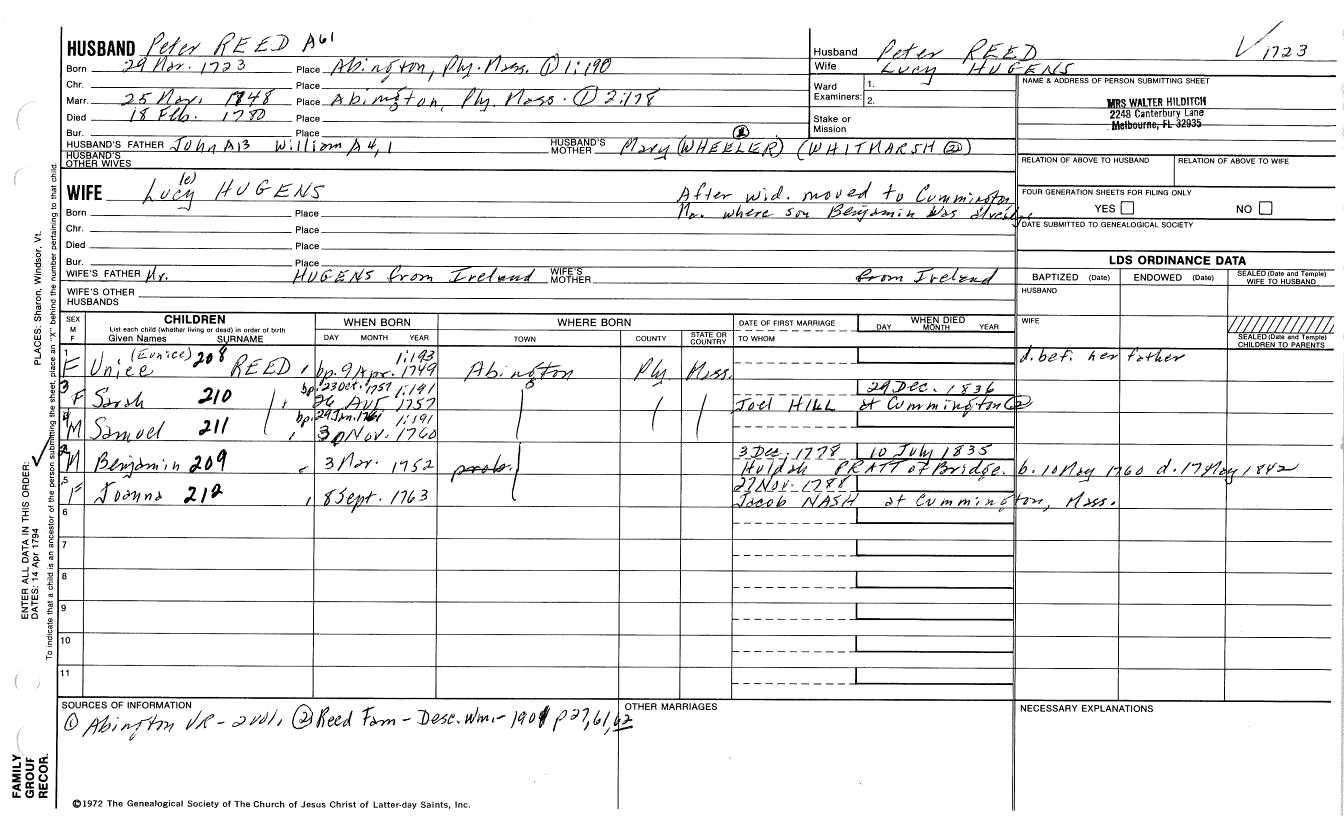 HUSBAND Peter REED A61
Born 29 Mar. 1723 Place Abington, Ply. Mass. ① 1:190
Chr. Place
Marr. 25 Nov. 1748 Place Abington, Ply. Mass. ① 2:178
Died 18 Feb. 1780 Place
Bur. Place
HUSBAND'S FATHER John A13 William A4,1 HUSBAND'S MOTHER Mary (WHEELER) (WHITMARSH ②)
HUSBAND'S OTHER WIVES
Husband Peter REED
Wife Lucy HUGENS
√ 1723
Ward Examiners: 1.
2.
Stake or Mission
NAME & ADDRESS OF PERSON SUBMITTING SHEET
MRS WALTER HILDITCH
2248 Canterbury Lane
Melbourne, FL 32935
RELATION OF ABOVE TO HUSBAND RELATION OF ABOVE TO WIFE
FOUR GENERATION SHEETS FOR FILING ONLY
YES NO
DATE SUBMITTED TO GENEALOGICAL SOCIETY
WIFE Lucy (c) HUGENS
After wid. moved to Cummington,
Ma. where son Benjamin was already
Born Place
Chr. Place
Died Place
Bur. Place
WIFE'S FATHER Mr. HUGENS from Ireland WIFE'S MOTHER from Ireland
WIFE'S OTHER HUSBANDS
LDS ORDINANCE DATA
BAPTIZED (Date) ENDOWED (Date) SEALED (Date and Temple) WIFE TO HUSBAND
HUSBAND
WIFE
SEALED (Date and Temple) CHILDREN TO PARENTS
SEX M F
CHILDREN
List each child (whether living or dead) in order of birth
Given Names SURNAME
WHEN BORN
DAY MONTH YEAR
WHERE BORN
TOWN COUNTY STATE OR COUNTRY
DATE OF FIRST MARRIAGE
TO WHOM
WHEN DIED
DAY MONTH YEAR
1 F Unice (Eunice) 208 REED, bp. 9 Apr. 1749 1:193 Abington Ply Mass. d. bef. her father
3 F Sarah 210 bp. 23 Oct. 1757 1:191 26 Aug 1757 Joel HILL 29 Dec. 1836 at Cummington ②
4 M Samuel 211 bp. 29 Jan. 1761 1:191 30 Nov. 1760
2 M Benjamin 209 3 Mar. 1752 prob. 3 Dec. 1778 10 July 1835 Huldah PRATT of Bridge. b. 10 May 1760 d. 17 May 1842
5 F Joanna 212 8 Sept. 1763 27 Nov. 1788 Jacob NASH at Cummington, Mass.
6
7
8
9
10
11
SOURCES OF INFORMATION
① Abington VR - 2 vol, ② Reed Fam - Desc. Wm. - 1901 p 27, 61, 62
OTHER MARRIAGES
NECESSARY EXPLANATIONS
©1972 The Genealogical Society of The Church of Jesus Christ of Latter-day Saints, Inc.
FAMILY GROUP RECOR.
ENTER ALL DATA IN THIS ORDER:
DATES: 14 Apr 1794
PLACES: Sharon, Windsor, Vt.
To indicate that a child is an ancestor of the person submitting the sheet, place an "X" behind the number pertaining to that child.